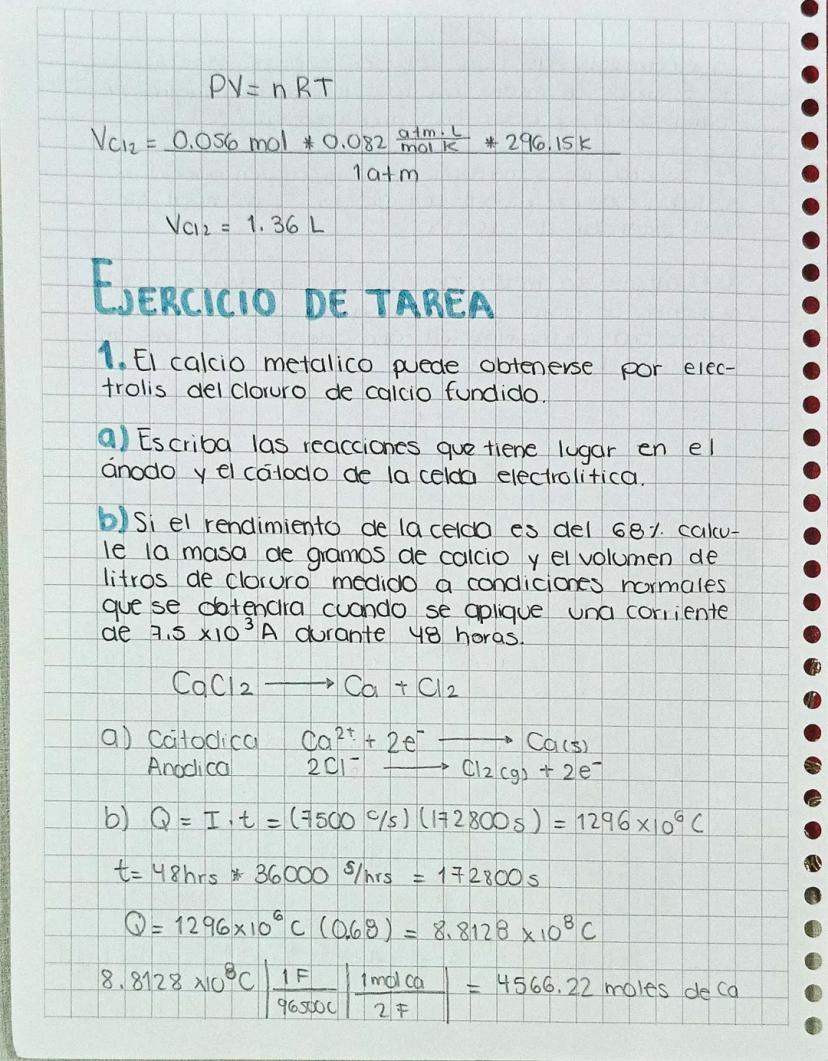 PV = nRT
VCl2 = 0.056 mol * 0.082 atm·L/mol K * 296.15K
1atm
VCl2 = 1.36 L
EJERCICIO DE TAREA
1. El calcio metalico puede obtenerse por elec-
trolis del cloruro de calcio fundido.
a) Escriba las reacciones que tiene lugar en el
ánodo y el cátodo de la celda electrolitica.
b) Si el rendimiento de la celda es del 68% calcu-
le la masa de gramos de calcio y el volumen de
litros de cloruro medido a condiciones normales
que se obtendra cuando se aplique una corriente
de 7.5 x10³A durante 48 horas.
CaCl2 → Ca + Cl2
a) Cátodica Ca²⁺ + 2e⁻ → Ca(s)
Anodica 2Cl⁻ → Cl2(g) + 2e⁻
b) Q = I·t = (7500 c/s)(172800s) = 1296x10⁶C
t= 48hrs * 36000 s/hrs = 172800s
Q= 1296x10⁶C (0.68) = 8.8128 x10⁸C
8.8128 x10⁸C | 1F/96500C | 1mol ca/2F | = 4566.22 moles de ca